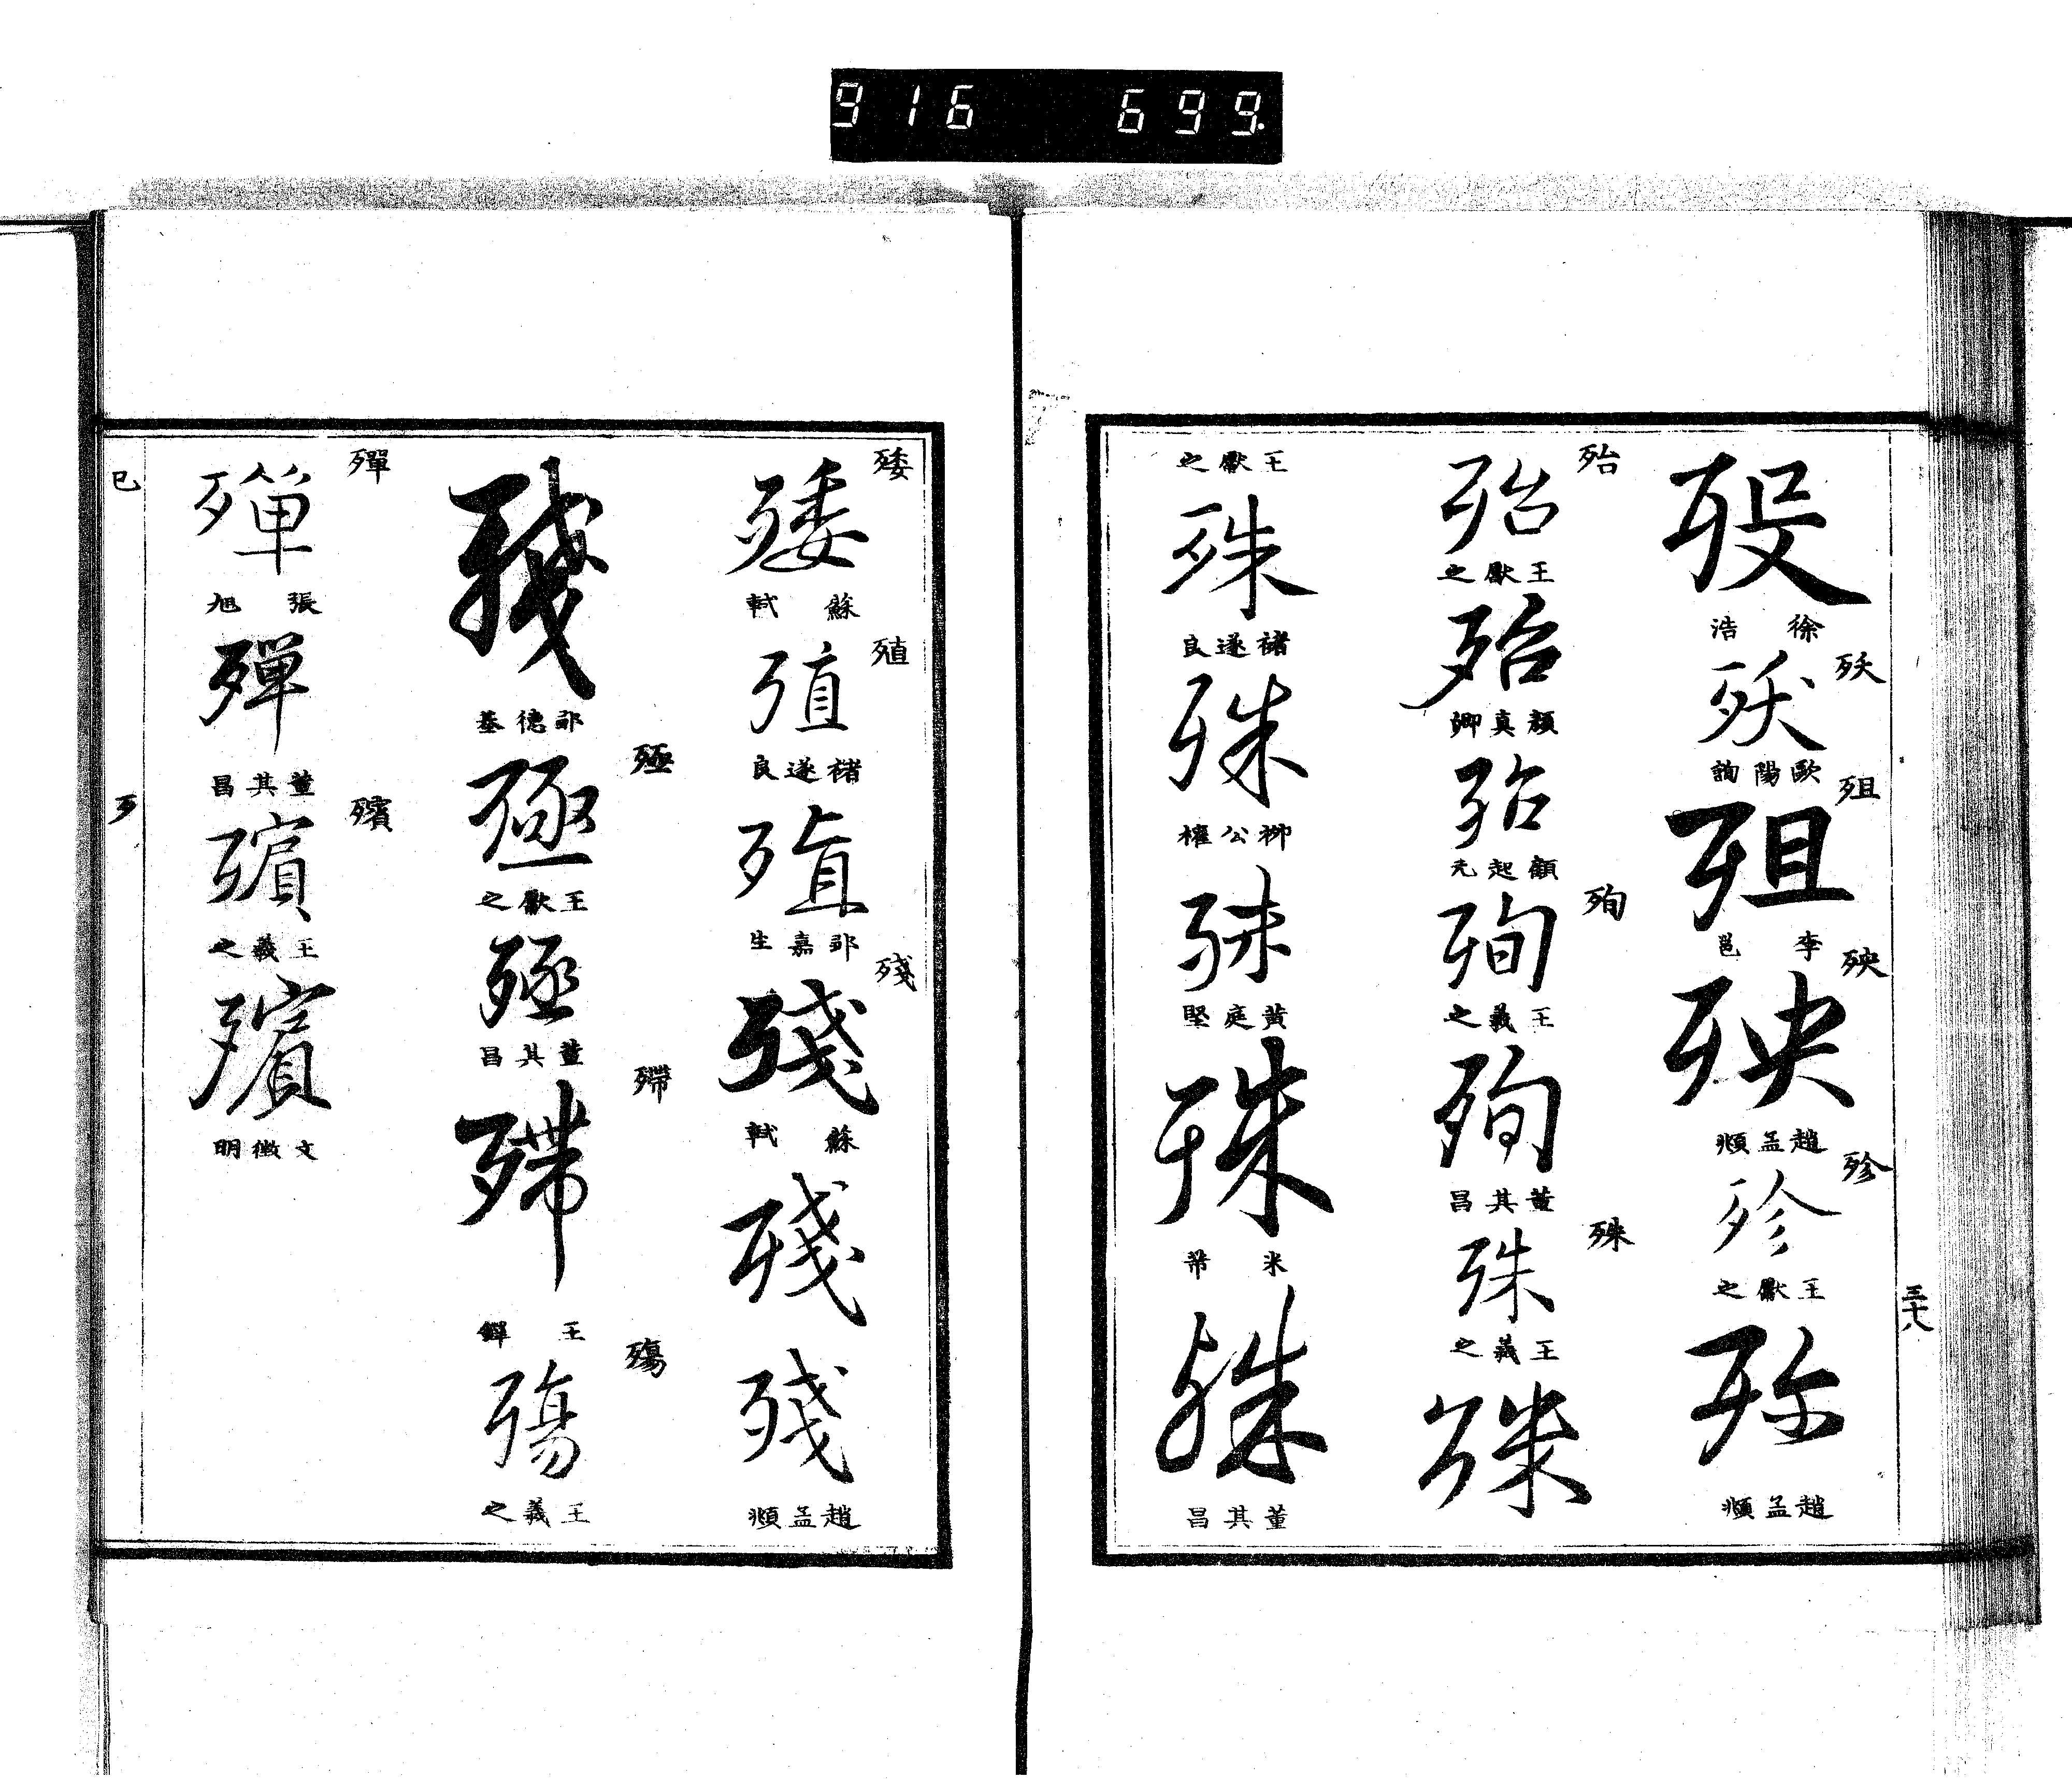 916 699.
三十八
歿
徐浩
殀
殀
歐陽詢
殂
殂
李邕
殃
殃
趙孟頫
殄
殄
王獻之
殄
趙孟頫
殆
殆
王獻之
殆
顏真卿
殆
顧起元
殉
殉
王羲之
殉
董其昌
殊
殊
王羲之
殊
王獻之
殊
褚遂良
殊
柳公權
殊
黃庭堅
殊
米芾
殊
董其昌
殘
蘇軾
殖
殖
褚遂良
殖
嘉生
殘
殘
蘇軾
殘
殘
趙孟頫
殘
德基
殛
殛
王獻之
殛
董其昌
殢
殢
王鐸
殤
殤
王羲之
殫
殫
張旭
殫
董其昌
殯
殯
王羲之
殯
文徵明
巳
歹